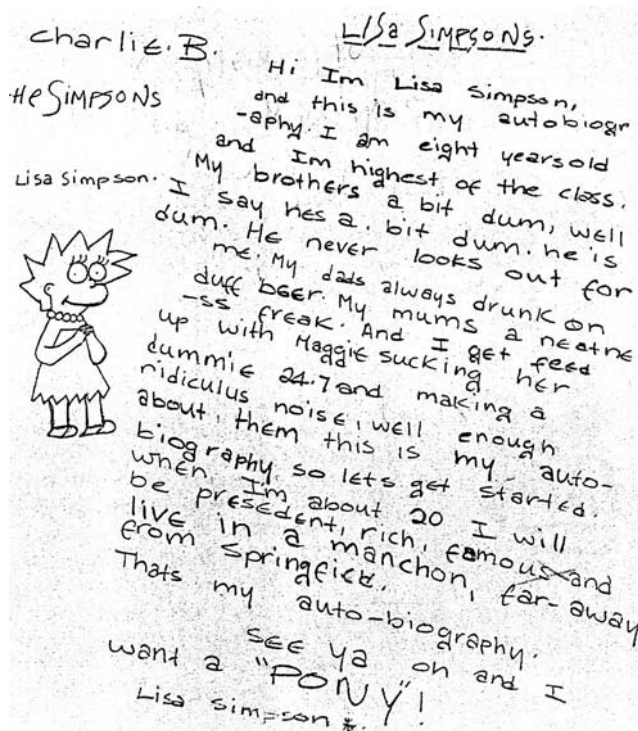 charlie. B.
HE SIMPSONS
Lisa Simpson.
LISa SIMPSONS.
Hi Im Lisa Simpson,
and this is my autobiogr
-aphy. I am eight yearsold
and Im highest of the class.
My brothers a bit dum, well
I say hes a. bit dum. he is
dum. He never looks out for
me. My dads always drunk on
duff beer. My mums a neatne
-ss freak. And I get feed
up with Maggie sucking her
dummie 24.7 and making a
ridiculus noise, well enough
about, them this is my auto-
biography so lets get started.
when I'm about 20 I will
be presedent, rich, famous and
live in a manchon, far-away
from Springfield.
Thats my auto-biography.
see ya oh and I
want a "PONY"!
Lisa simpson *.